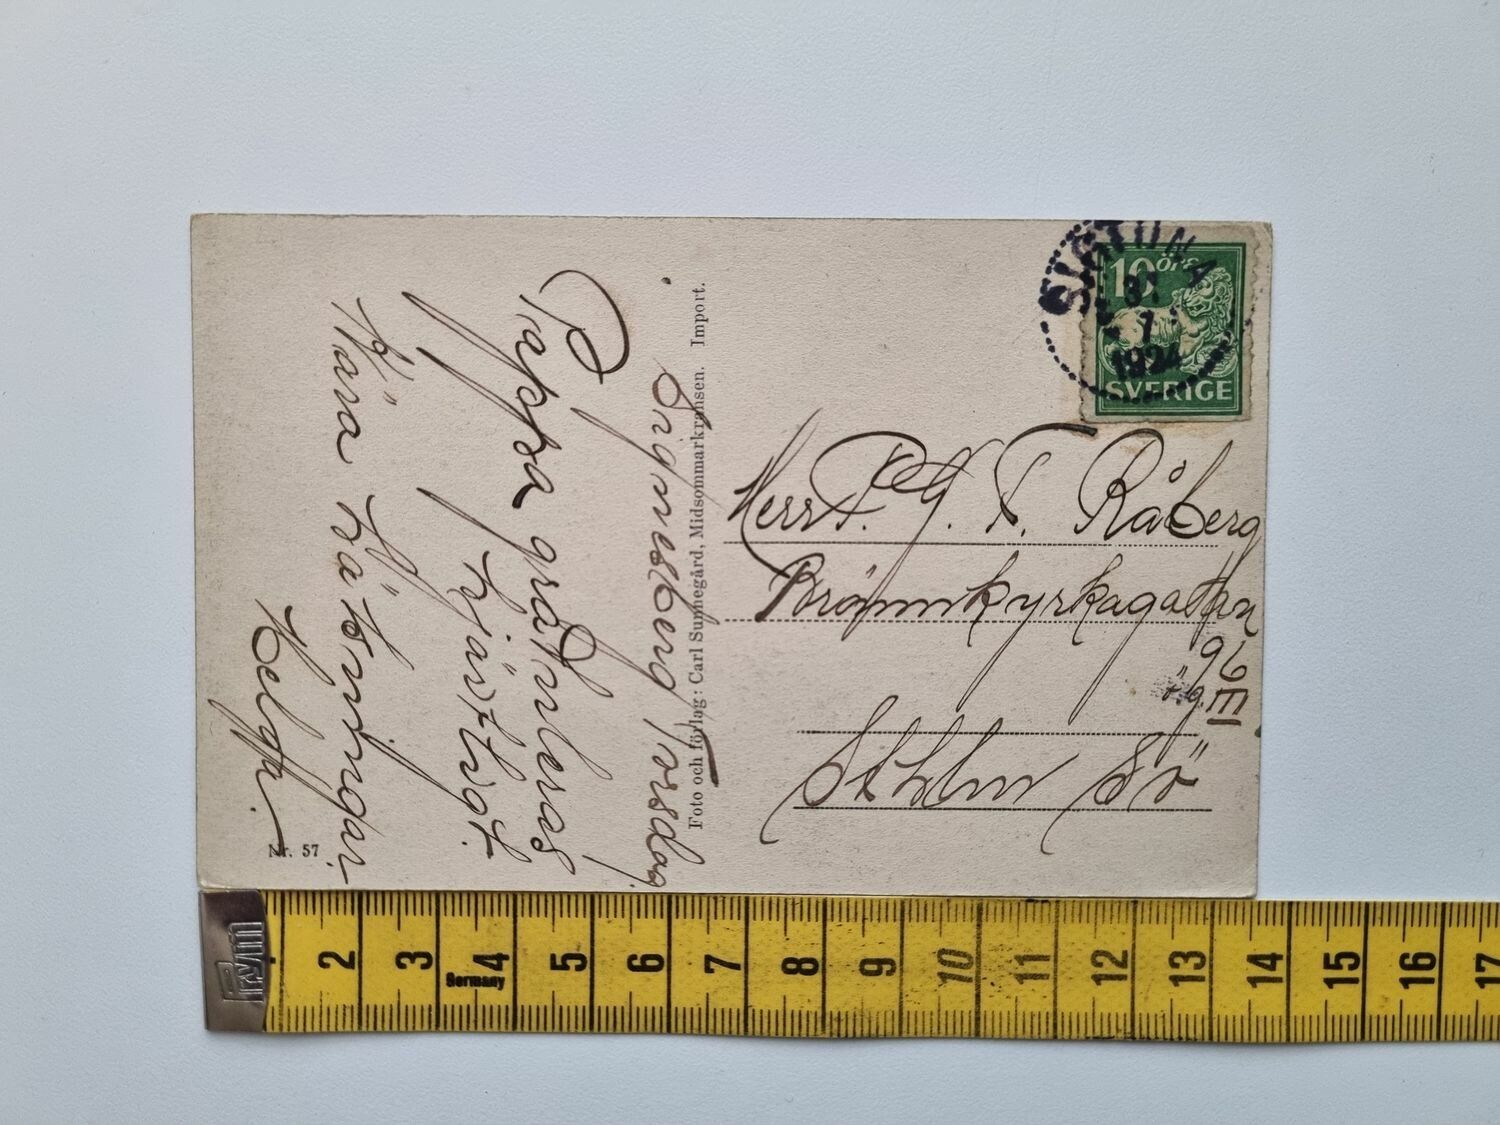 Signesberg Torsdag
Pappa gratuleras
hjärtligt.
Kära hälsningar.
Helga.
Nr. 57
Foto och förlag: Carl Sunnegård, Midsommarkransen. Import.
SIGTUNA
31
7
1924
10 ÖRE
SVERIGE
Herr P. G. T. Råberg
Brännkyrkagatan
96
ö.g. III
Sthlm Sö
Prym
Germany
2 3 4 5 6 7 8 9 10 11 12 13 14 15 16 17